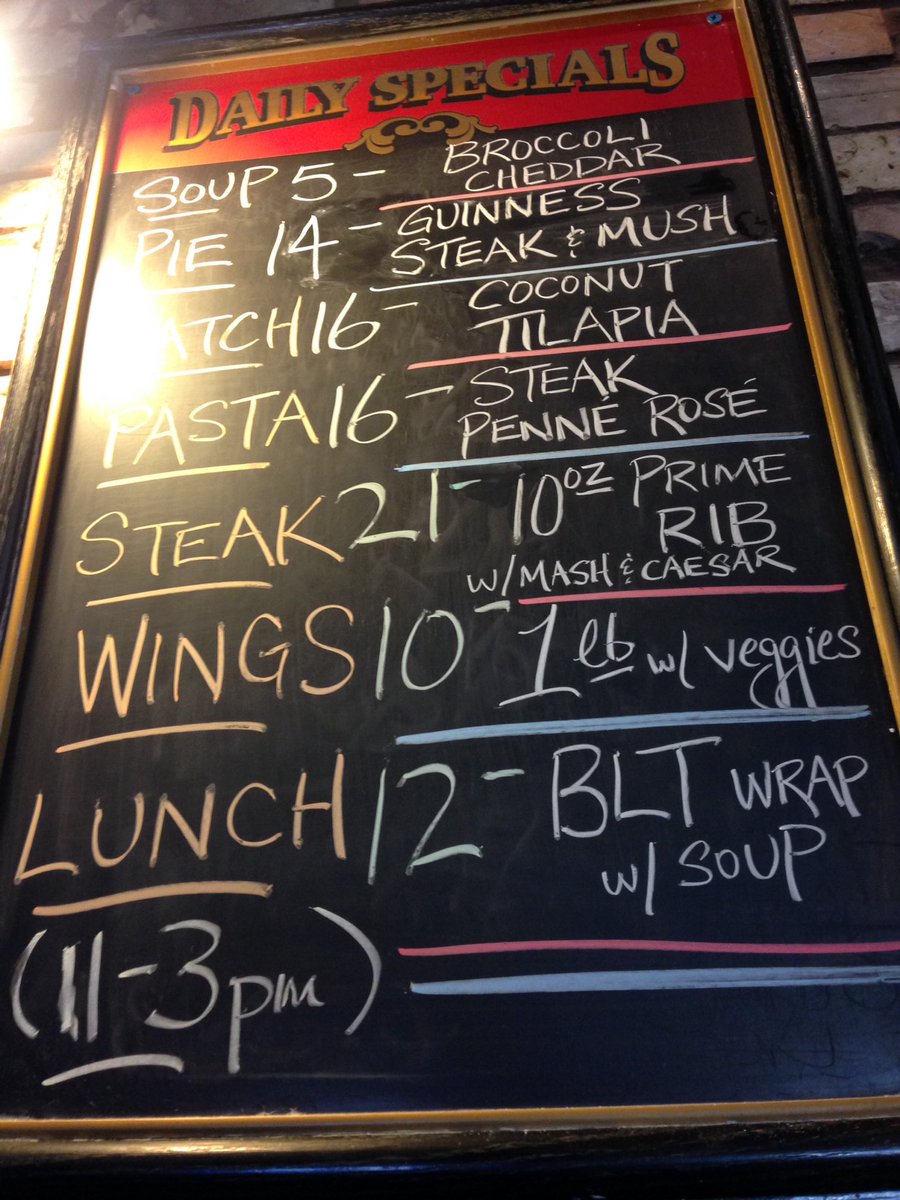 DAILY SPECIALS
SOUP 5 - BROCCOLI
CHEDDAR
PIE 14 - GUINNESS
STEAK & MUSH
CATCH 16 - COCONUT
TILAPIA
PASTA 16 - STEAK
PENNÉ ROSÉ
STEAK 21 - 10oz PRIME
RIB
W/ MASH & CAESAR
WINGS 10 - 1 lb w/ veggies
LUNCH 12 - BLT WRAP
w/ SOUP
(11-3pm)